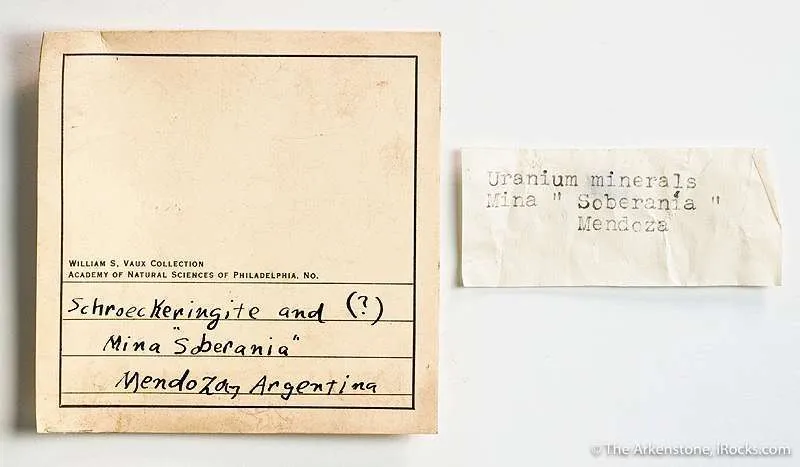 WILLIAM S. VAUX COLLECTION
ACADEMY OF NATURAL SCIENCES OF PHILADELPHIA, NO.
Schroeckeringite and (?)
Mina "Soberania"
Mendoza, Argentina
Uranium minerals
Mina " Soberanía "
Mendoza
© The Arkenstone, iRocks.com